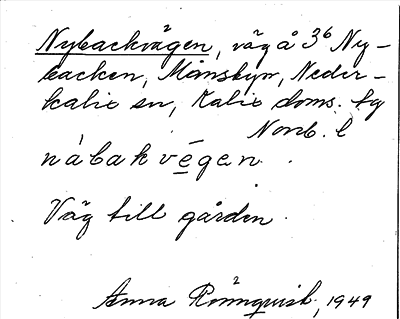 Nybackvägen, väg å 3⁶ Ny-
backen, Månsbyn, Neder-
kalix sn, Kalix doms. fg
Norrb. l
nábakvégen.
Väg till gården.
Anna Rönnqvist, 1949